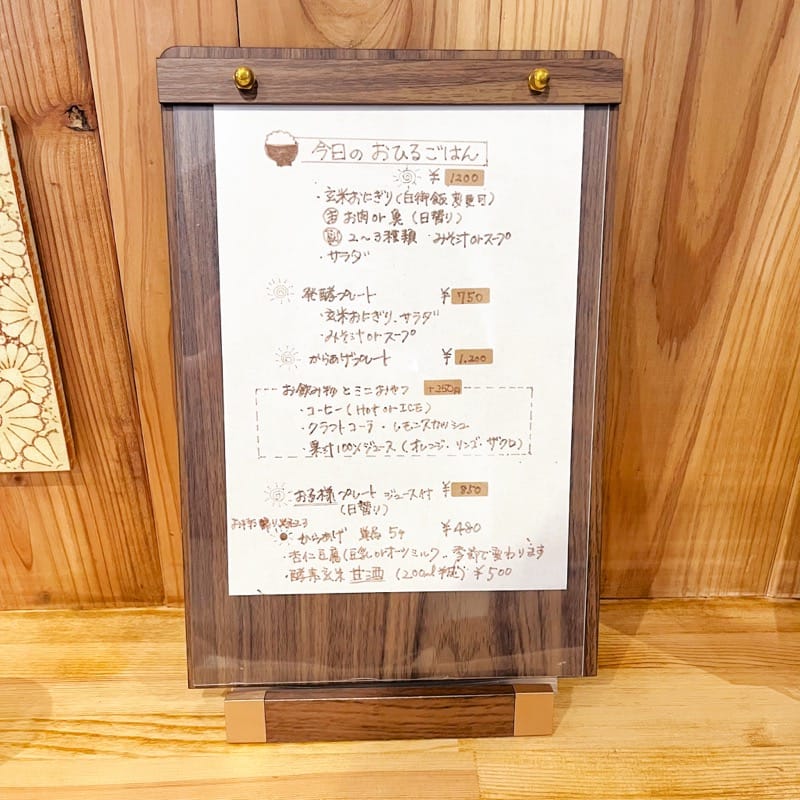 今日の おひるごはん
¥ 1200
・玄米おにぎり(白御飯 変更可)
主 お肉 or 魚 (日替り)
副 2〜3種類 ・みそ汁orスープ
・サラダ
発酵プレート ¥ 750
・玄米おにぎり、サラダ
・みそ汁orスープ
からあげプレート ¥ 1,200
お飲み物とミニおやつ +250円
・コーヒー(Hot or ICE)
・クラフトコーラ ・レモンスカッシュ
・果汁100%ジュース(オレンジ・リンゴ・ザクロ)
お子様プレート ジュース付 ¥ 850
(日替り)
お持ち帰り
からあげ 単品 5ヶ ¥480
・杏仁豆腐(豆乳orオーツミルク)、季節で変わります
・酵素玄米 甘酒 (200ml) ¥500